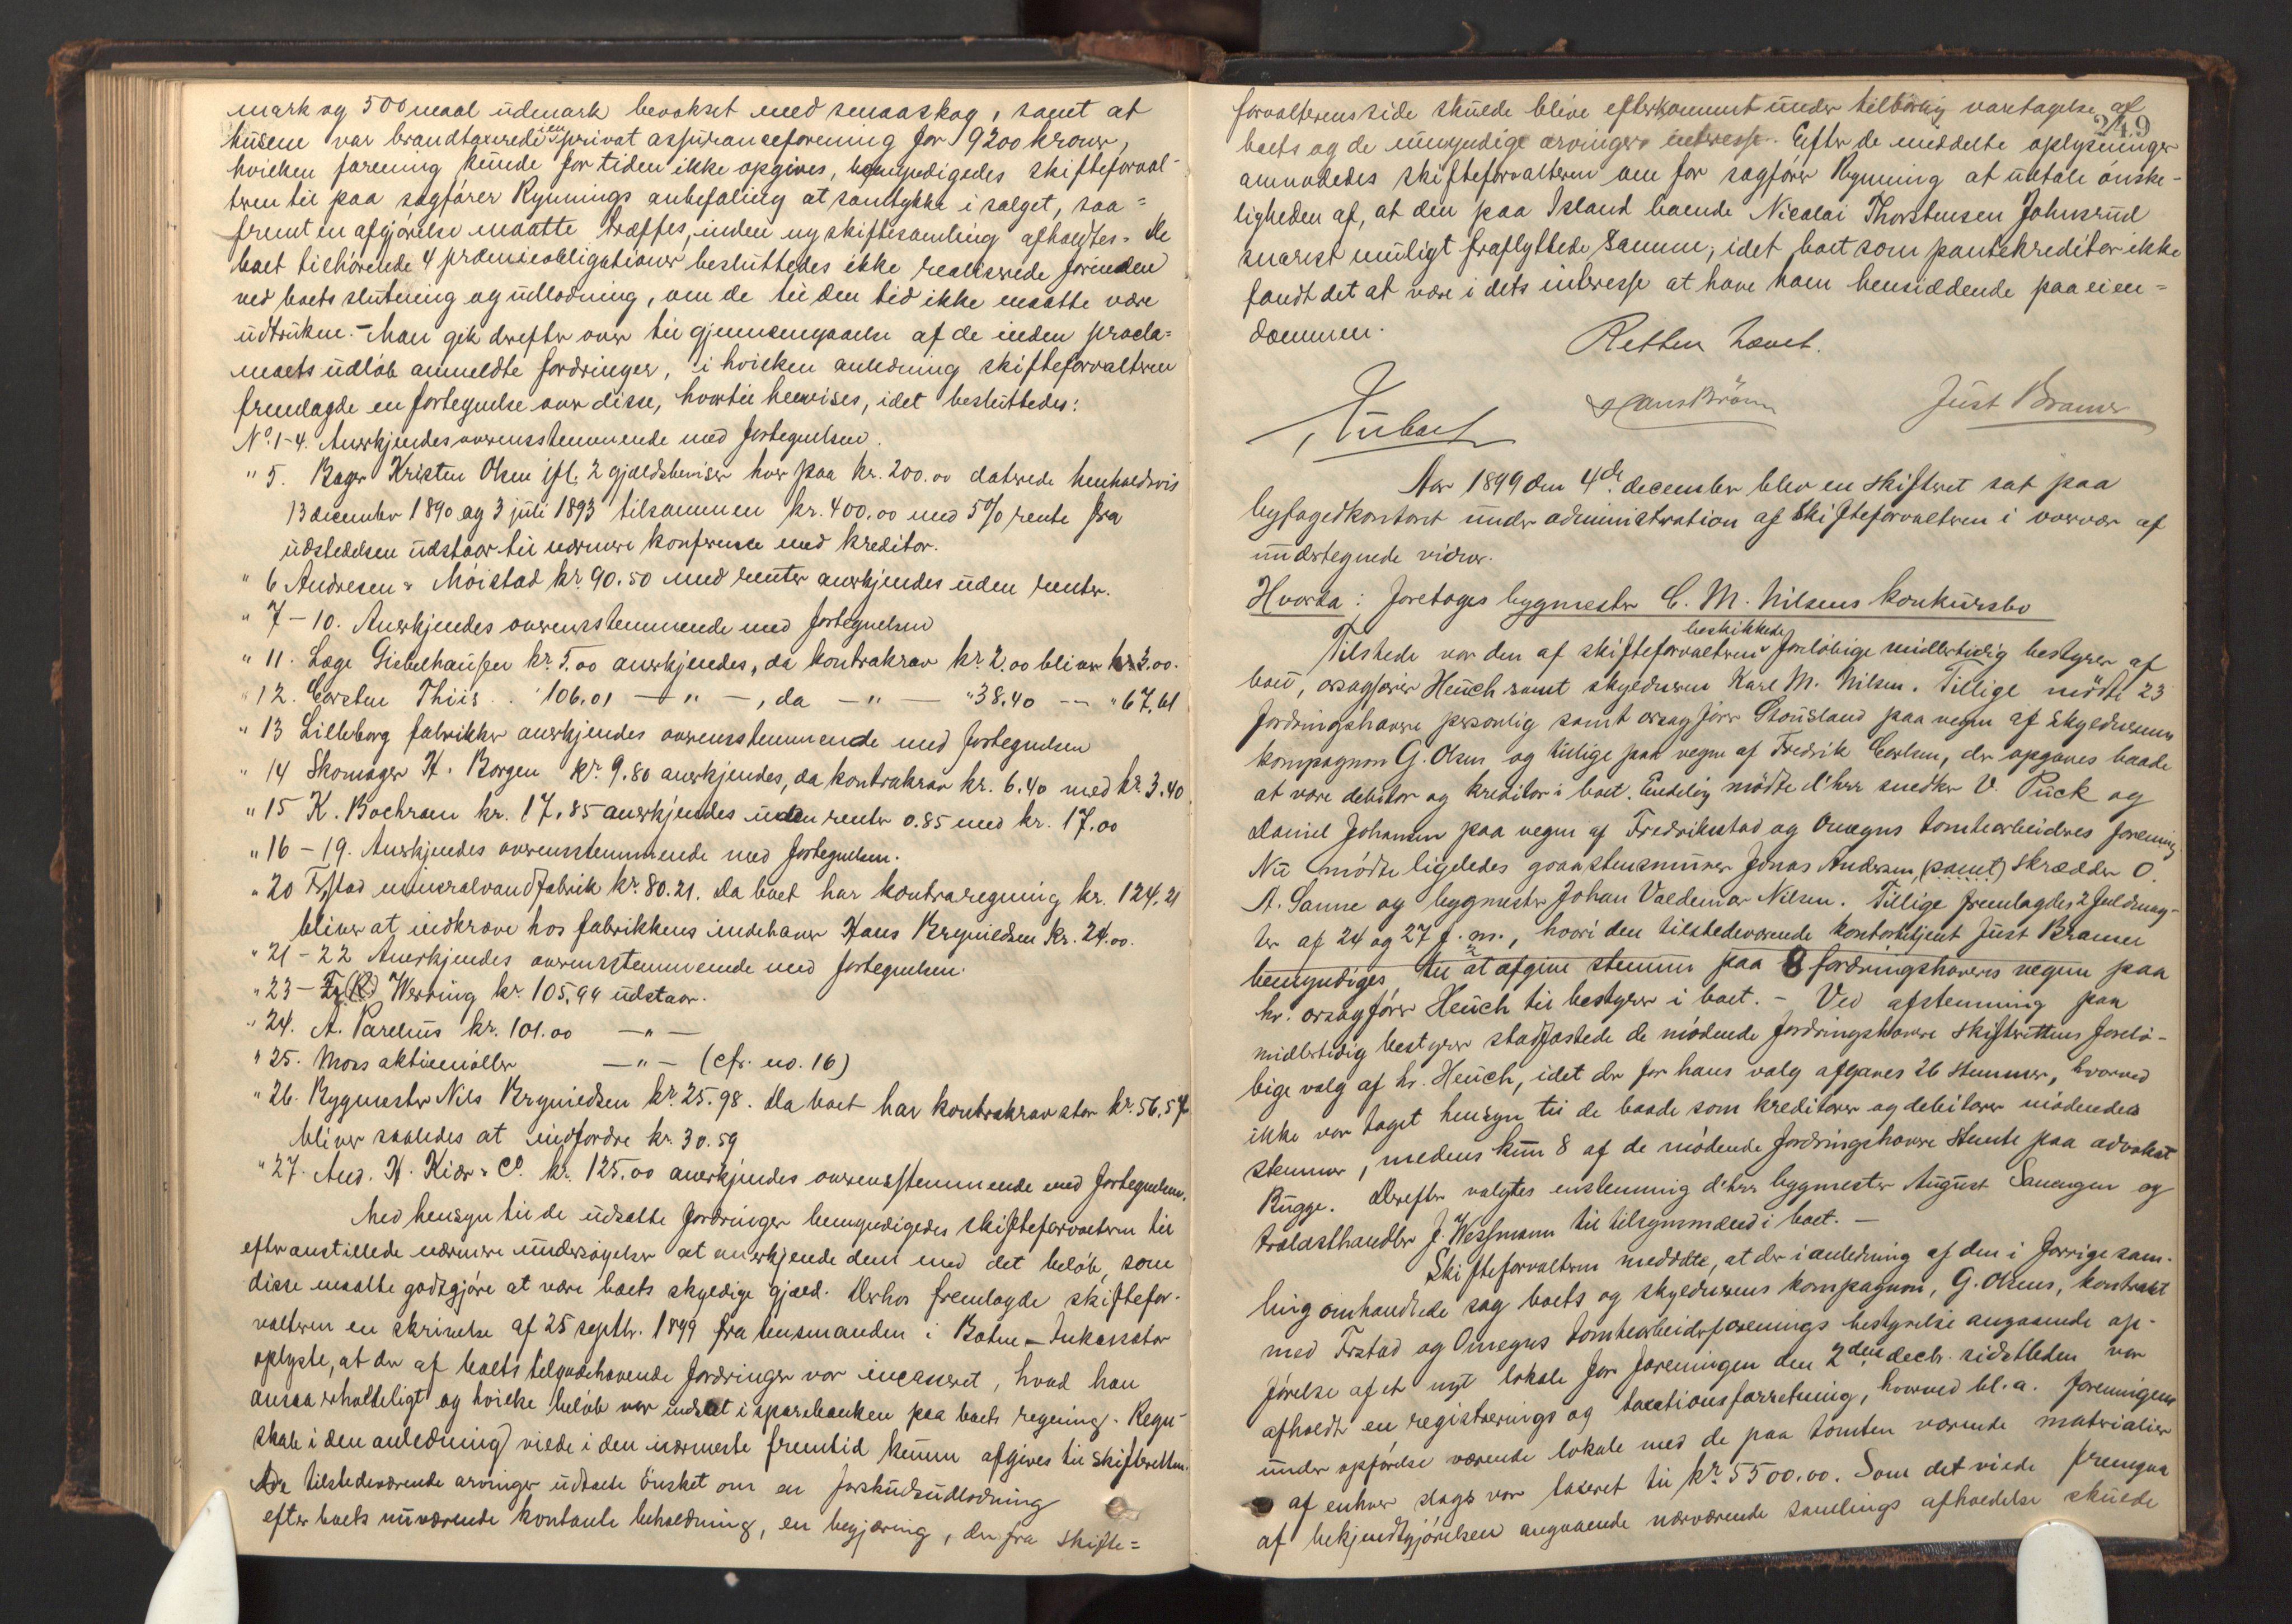 mark og 500 maal udmark bevokset med smaaskog, samt at
husene var brandtaxerede i en privat assuranceforening for 9200 kroner,
hvilken forening kunde for tiden ikke opgives, bemyndigedes skifteforval-
teren til paa sagfører Rynnings anbefaling at samtykke i salget, saa=
fremt en afgjørelse maatte træffes, inden ny skiftesamling afholdtes. De
boet tilhørende 4 præmieobligationer besluttedes ikke realiserede forinden
ved boets slutning og udlodning, om de til den tid ikke maatte være
udtrukne. - Man gik derefter over til gjennemgaaelse af de inden procla=
maets udløb anmeldte fordringer, i hvilken anledning skifteforvalteren
fremlagde en fortegnelse over disse, hvortil henvises, idet besluttedes:
No. 1-4. Anerkjendes overensstemmende med fortegnelsen.
" 5. Bager Kristen Olsen ifl. 2 gjældsbeviser hver paa kr. 200.00 daterede henholdsvis
13 december 1890 og 3 juli 1893 tilsammen kr. 400.00 med 5% rente fra
udstedelsen udstaar til nærmere konference med kreditor.
" 6 Andresen & Møistad kr. 90.50 med renter anerkjendes uden renter.
" 7-10. Anerkjendes overensstemmende med fortegnelsen
" 11. Læge Giebelhausen kr. 5.00 anerkjendes, da kontrakrav kr. 2.00 bliver kr. 3.00.
" 12. Carsten Thiis . " 106.01 — " — , da — " — " 38.40 — " 67.61
" 13 Lilleborg fabrikker anerkjendes overensstemmende med fortegnelsen
" 14 Skomager H. Borgen kr. 9.80 anerkjendes, da kontrakrav kr. 6.40 med kr. 3.40
" 15 K. Bochram kr. 17.85 anerkjendes uden renter 0.85 med kr. 17.00
" 16-19. Anerkjendes overensstemmende med fortegnelsen.
" 20 Frstad mineralvandfabrik kr. 80.21. Da boet har kontraregning kr. 124.21
bliver at indkræve hos fabrikkens indehaver Hans Brynildsen kr. 24.00.
" 21-22 Anerkjendes overensstemmende med fortegnelsen.
" 23 - Fr (R) Werring kr. 105.94 udstaar.
" 24. A. Parelius kr. 101.00 — " —
" 25. Moss aktiemøller — " — (cfr. no. 16)
" 26. Bygmester Nils Brynildsen kr. 25.98. Da boet har kontrakrav stor kr. 56.57
bliver saaledes at indfordre kr. 30.59
" 27. And. H. Kiær & Co. kr. 125.00 anerkjendes overensstemmende med fortegnelsen.
Med hensyn til de udsatte fordringer bemyndigedes skifteforvalteren til
efter anstillede nærmere undersøgelser at anerkjende dem med det beløb, som
disse maatte godtgjøre at være boets skyldige gjæld. Derhos fremlagde skiftefor-
valteren en skrivelse af 25 septbr. 1899 fra lensmanden i Botne. - Inkassator
oplyste, at der af boets tilgodehavende fordringer var incasseret, hvad han
ansaa erholdeligt og hvilke beløb var indsat i sparebanken paa boets regning. Regn-
skab i den anledning vilde i den nærmeste fremtid kunne afgives til skifteretten.
De tilstedeværende arvinger udtalte ønsket om en forskudsudlodning
efter boets nuværende kontante beholdning, en begjæring, der fra skifte=
249
forvalterens side skulde blive efterkommet under tilbørlig varetagelse af
boets og de umyndige arvingers interesse. Efter de meddelte oplysninger
anmodedes skifteforvalteren om for sagfører Rynning at udtale ønske-
ligheden af, at den paa Island boende Nicolai Thorstensen Johnsrud
snarest muligt fraflyttede samme, idet boet som pantekreditor ikke
fandt det at være i dets interesse at have ham hensiddende paa eien=
dommen.
Retten hævet.
Hans Brønn
Just Bramer
Aar 1899 den 4de december blev en skifteret sat paa
byfogedkontoret under administration af skifteforvalteren i overvær af
undertegnede vidner.
Hvorda: Foretoges bygmester C. M. Nilsens konkursbo
Tilstede var den af skifteforvalteren beskikkede foreløbige midlertidig bestyrer af
boet, orsagfører Heuch samt skyldneren Karl M. Nilsen. Tillige mødte 23
fordringshavere personlig samt orsagfører Stousland paa vegne af skyldnerens
kompagnon G. Olsen og tillige paa vegne af Fredrik Carlsen, der opgaves baade
at være debitor og kreditor i boet. Endelig mødte d'hrr snedker V. Puck og
Daniel Johansen paa vegne af Fredriksstad og Omegns tomtearbeideres forening.
Nu mødte ligeledes graastensmurer Jonas Andersen, (samt) skrædder O.
A. Sanne og bygmester Johan Valdemar Nilsen. Tillige fremlagdes 2 fuldmag-
ter af 24 og 27 f. m., hvori den tilstedeværende kontorbetjent Just Bramer
bemyndiges til at afgive stemme paa 8 fordringshaveres vegne paa
hr. orsagfører Heuch til bestyrer i boet. - Ved afstemning paa
midlertidig bestyrer stadfæstede de mødende fordringshavere skifterettens foreløs-
bige valg af hr. Heuch, idet der for hans valg afgaves 26 stemmer, hvorved
ikke var taget hensyn til de baade som kreditorer og debitorer mødendes
stemmer, medens kun 8 af de mødende fordringshavere stemte paa advokat
Bugge. Derefter valgtes enstemmig d'hrr bygmester August Sanengen og
trælasthandler J. Wessmann til tilsynsmænd i boet. —
Skifteforvalteren meddelte, at der i anledning af den i forrige sam-
ling omhandlede sag boets og skyldnerens kompagnon, G. Olsens, kontrakt
med Frstad og Omegns tomtearbeiderforenings bestyrelse angaaende op-
førelse af et nyt lokale for foreningen den 2den decbr. sidstleden var
afholdt en registrerings og taxationsforretning, hvorved bl. a. foreningens
under opførelse værende lokale med de paa tomten værende materialier
af enhver slags var taxeret til kr. 5500.00. Som det vilde fremgaa
af bekjendtgjørelsen angaaende nærværende samlings afholdelse skulde